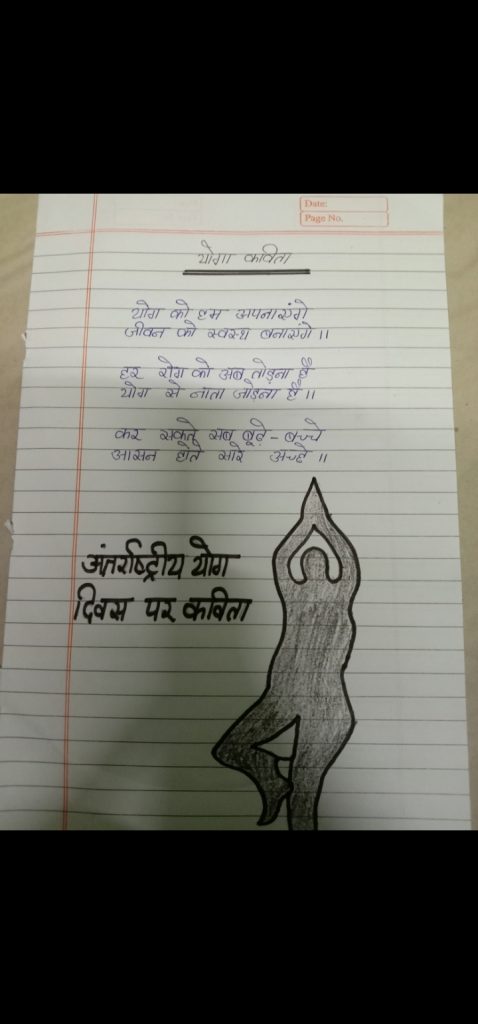 Date:
Page No.
योगा कविता
योग को हम अपनाएंगे
जीवन को स्वस्थ बनाएंगे ॥
हर रोग को अब तोड़ना है
योग से नाता जोड़ना है ॥
कर सकते सब बूढ़े - बच्चे
आसन होते सारे अच्छे ॥
अंतर्राष्ट्रीय योग
दिवस पर कविता